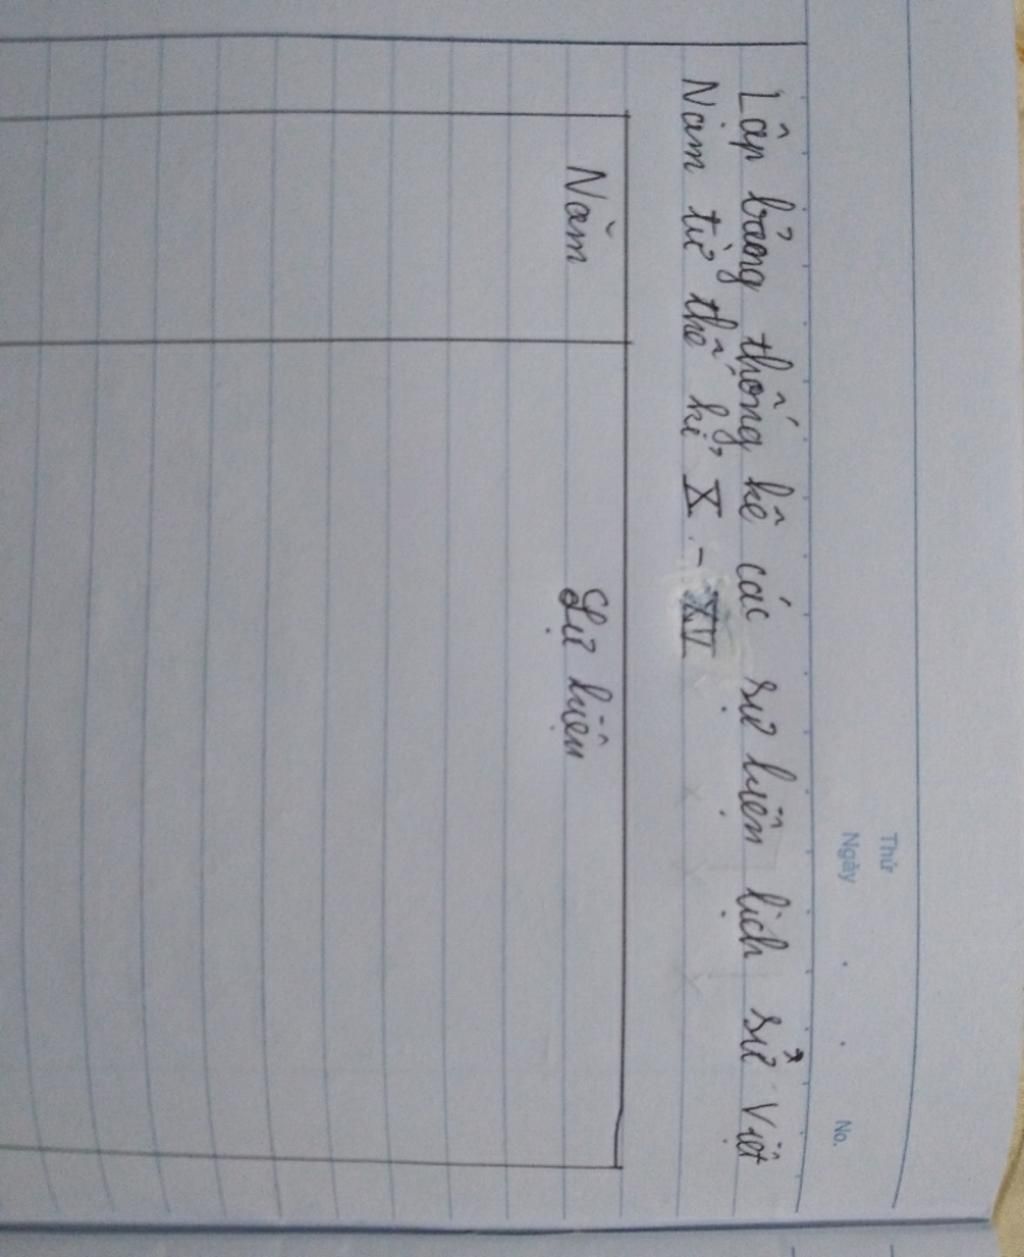 Thứ
Ngày
No.
Lập bảng thống kê các sự kiện lịch sử Việt
Nam từ thế kỉ X - XV
Năm
Sự kiện